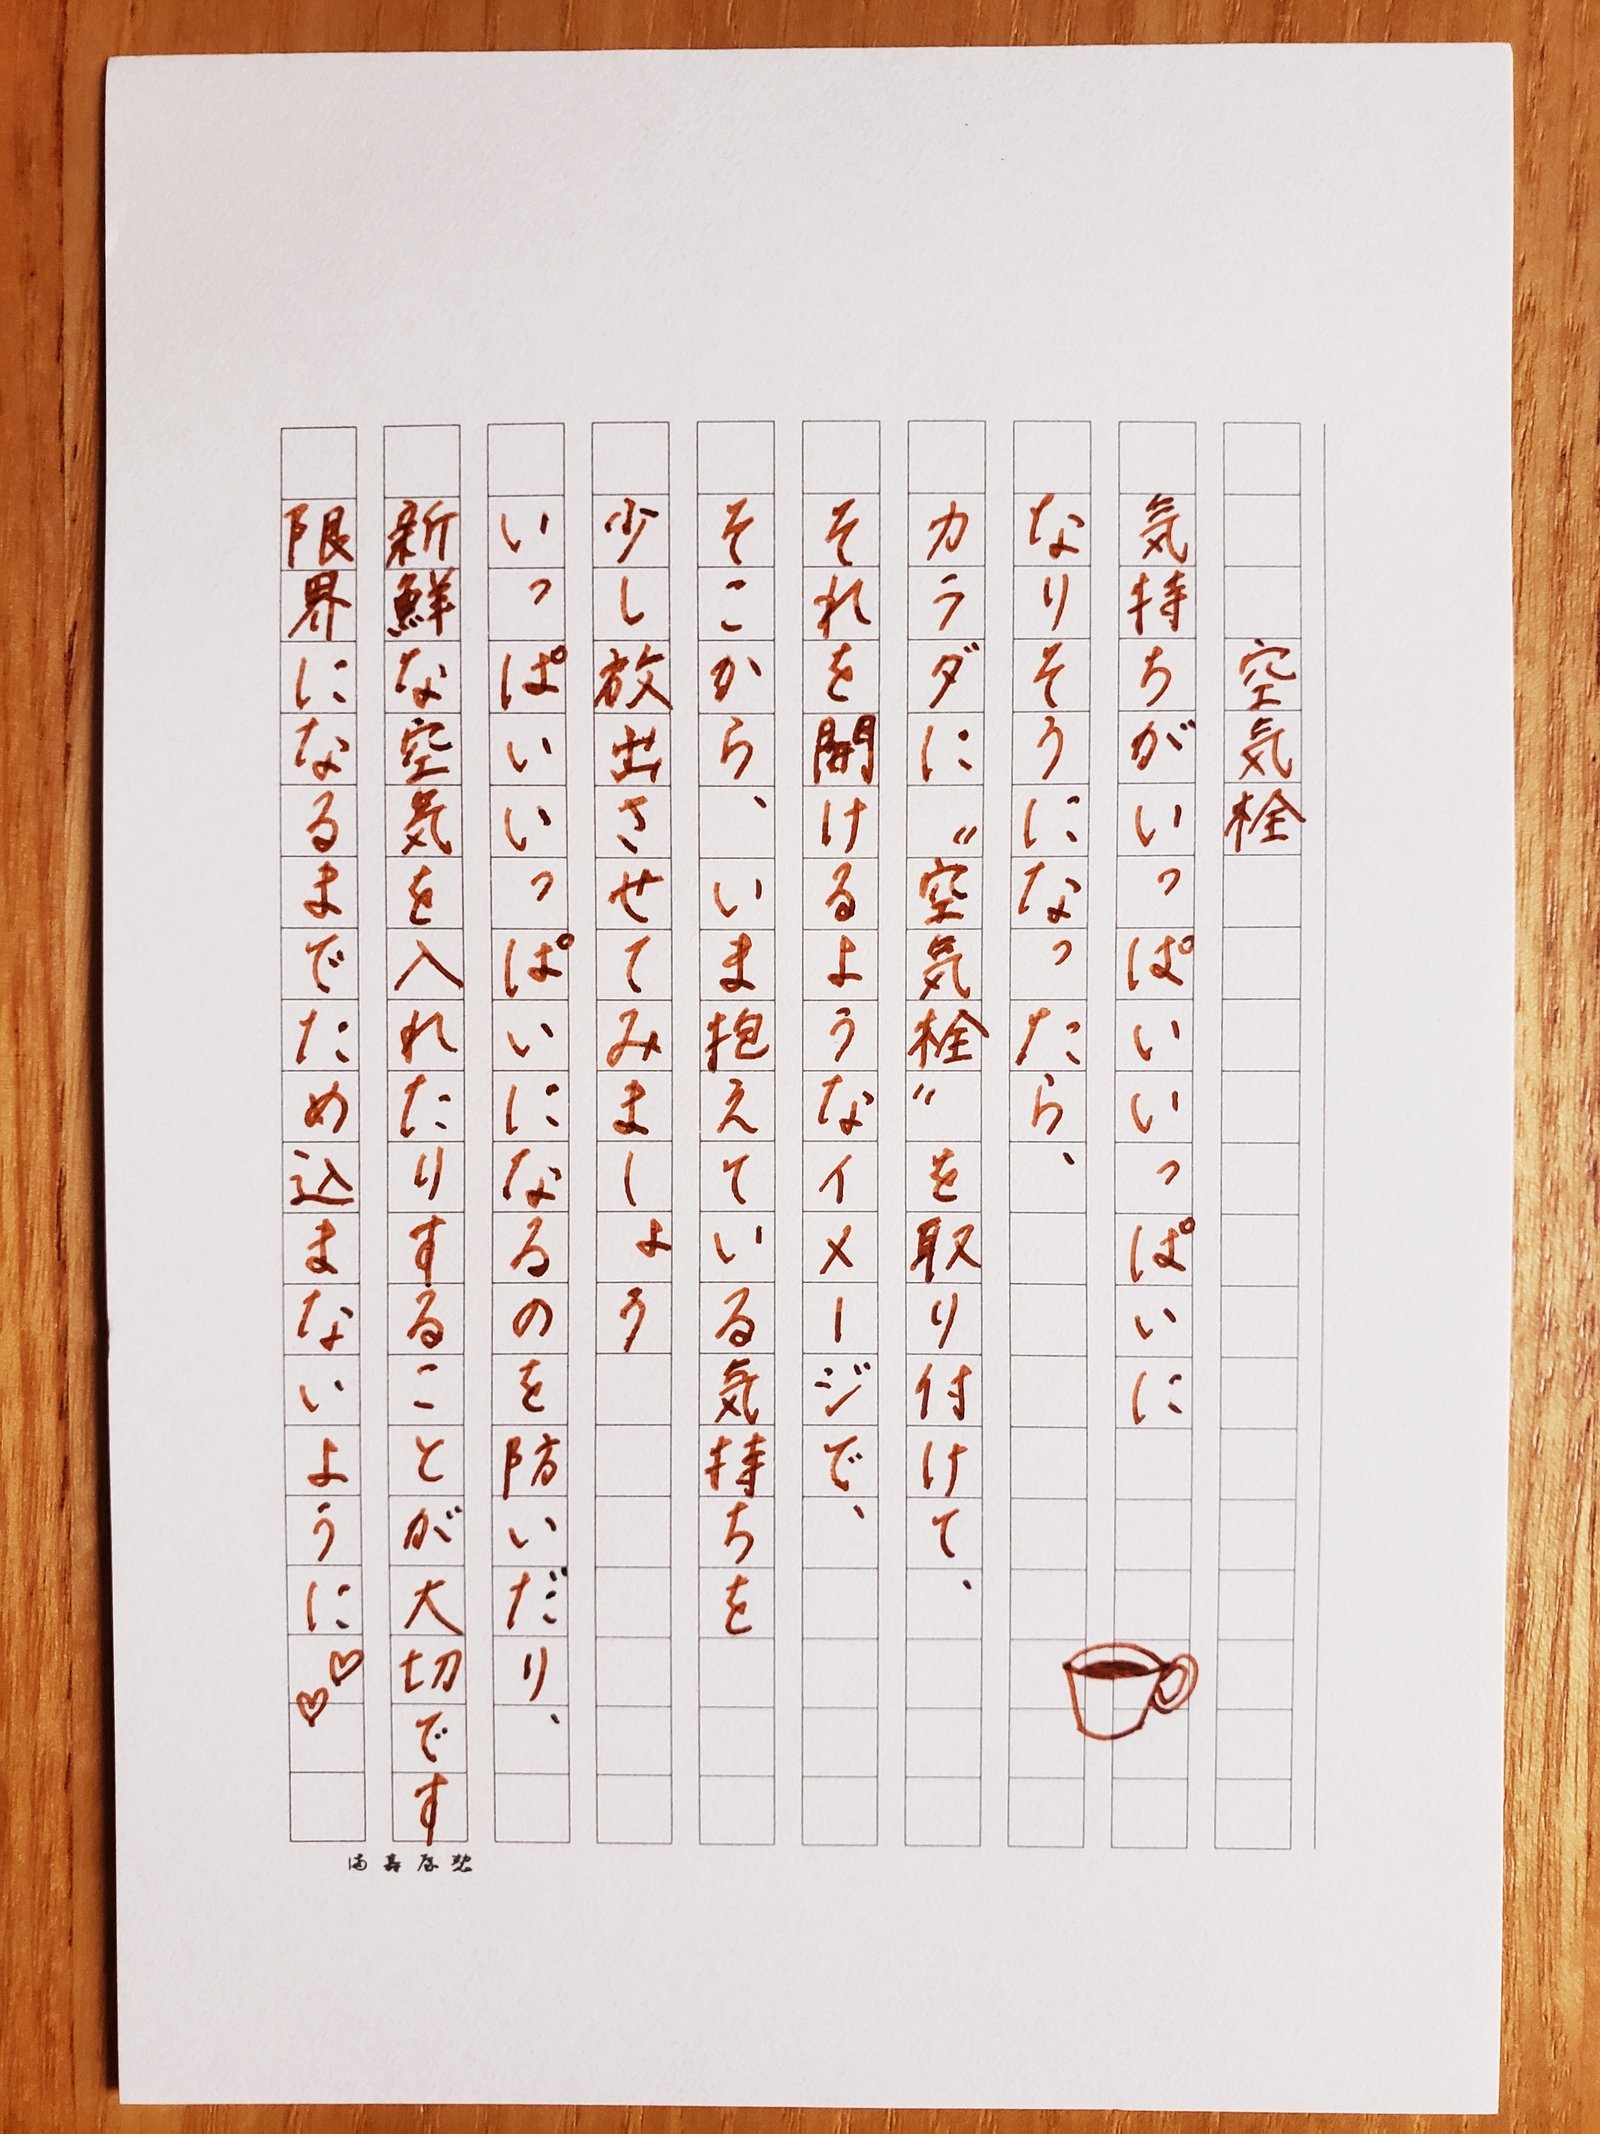 空気栓
気持ちがいっぱいいっぱいに
なりそうになったら、
カラダに〝空気栓〟を取り付けて、
それを開けるようなイメージで、
そこから、いま抱えている気持ちを
少し放出させてみましょう
いっぱいいっぱいになるのを防いだり、
新鮮な空気を入れたりすることが大切です
限界になるまでため込まないように♡♡